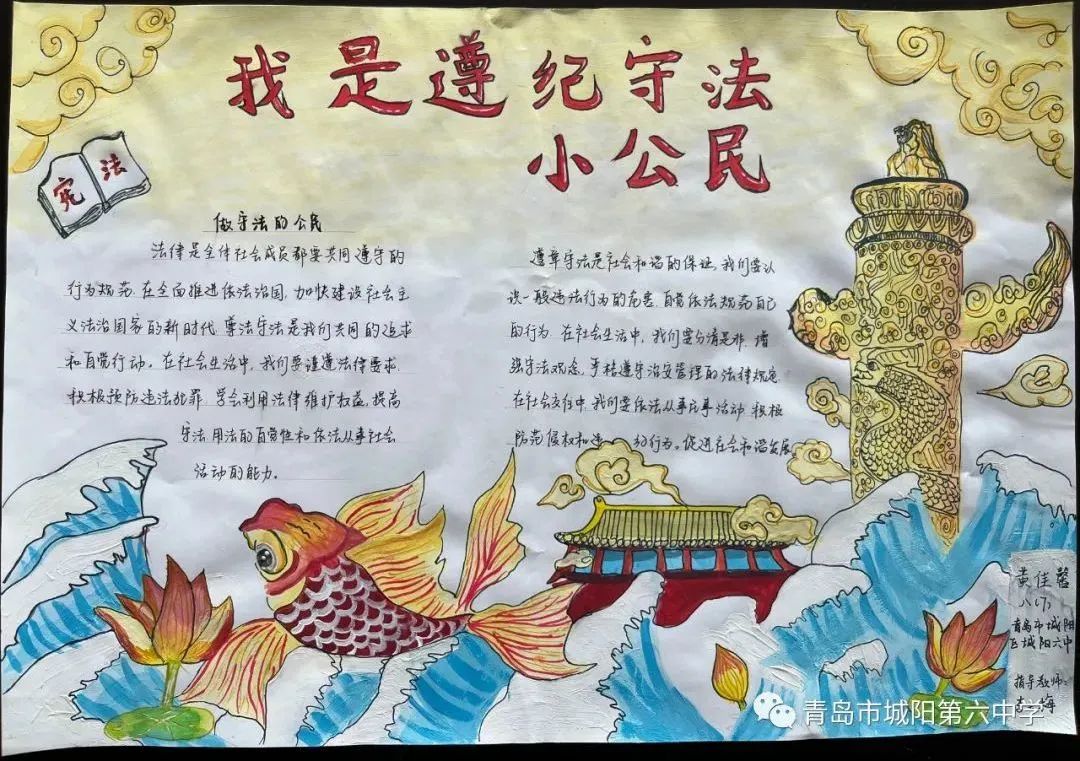 我是遵纪守法
小公民
宪法
做守法的公民
法律是全体社会成员都要共同遵守的
行为规范.在全面推进依法治国,加快建设社会主
义法治国家的新时代.尊法守法是我们共同的追求
和自觉行动。在社会生活中,我们要谨遵法律要求.
积极预防违法犯罪.学会利用法律维护权益,提高
守法用法的自觉性和依法从事社会
活动的能力。
遵章守法是社会和谐的保证,我们要认
识一般违法行为的危害.自觉依法规范自己
的行为.在社会生活中,我们要分清是非.增
强守法观念,严格遵守治安管理的法律规定.
在社会交往中,我们要依法从事民事活动.积极
防范侵权和违 的行为。促进社会和谐发展
黄佳馨
八(7)
青岛市城阳
区城阳六中
指导教师:
海
青岛市城阳第六中学